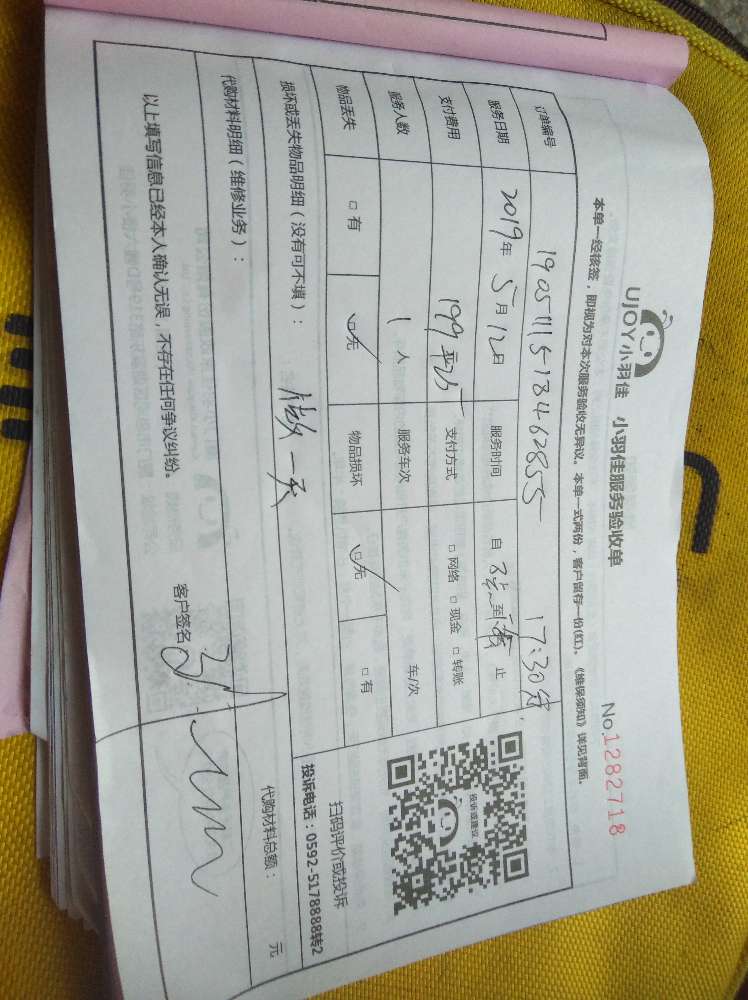 UJOY小羽佳 小羽佳服务验收单
No.1282718
本单一经核签，即视为对本次服务验收无异议。本单一式两份，客户留存一份(红)。《维保须知》详见背面。
订单编号 1905111518462855 17:30分
服务日期 2019年5月12日 服务时间 自 至 止
支付费用 199 支付方式 □网络 □现金 □转账
服务人数 1人 服务车次 车/次
物品丢失 □有 □无 物品损坏 □无 □有
投诉或建议
扫码评价或投诉
投诉电话：0592-5178888转2
损坏或丢失物品明细（没有可不填）：
做一天
代购材料明细（维修业务）：
代购材料总额： 元
以上填写信息已经本人确认无误，不存在任何争议纠纷。 客户签名